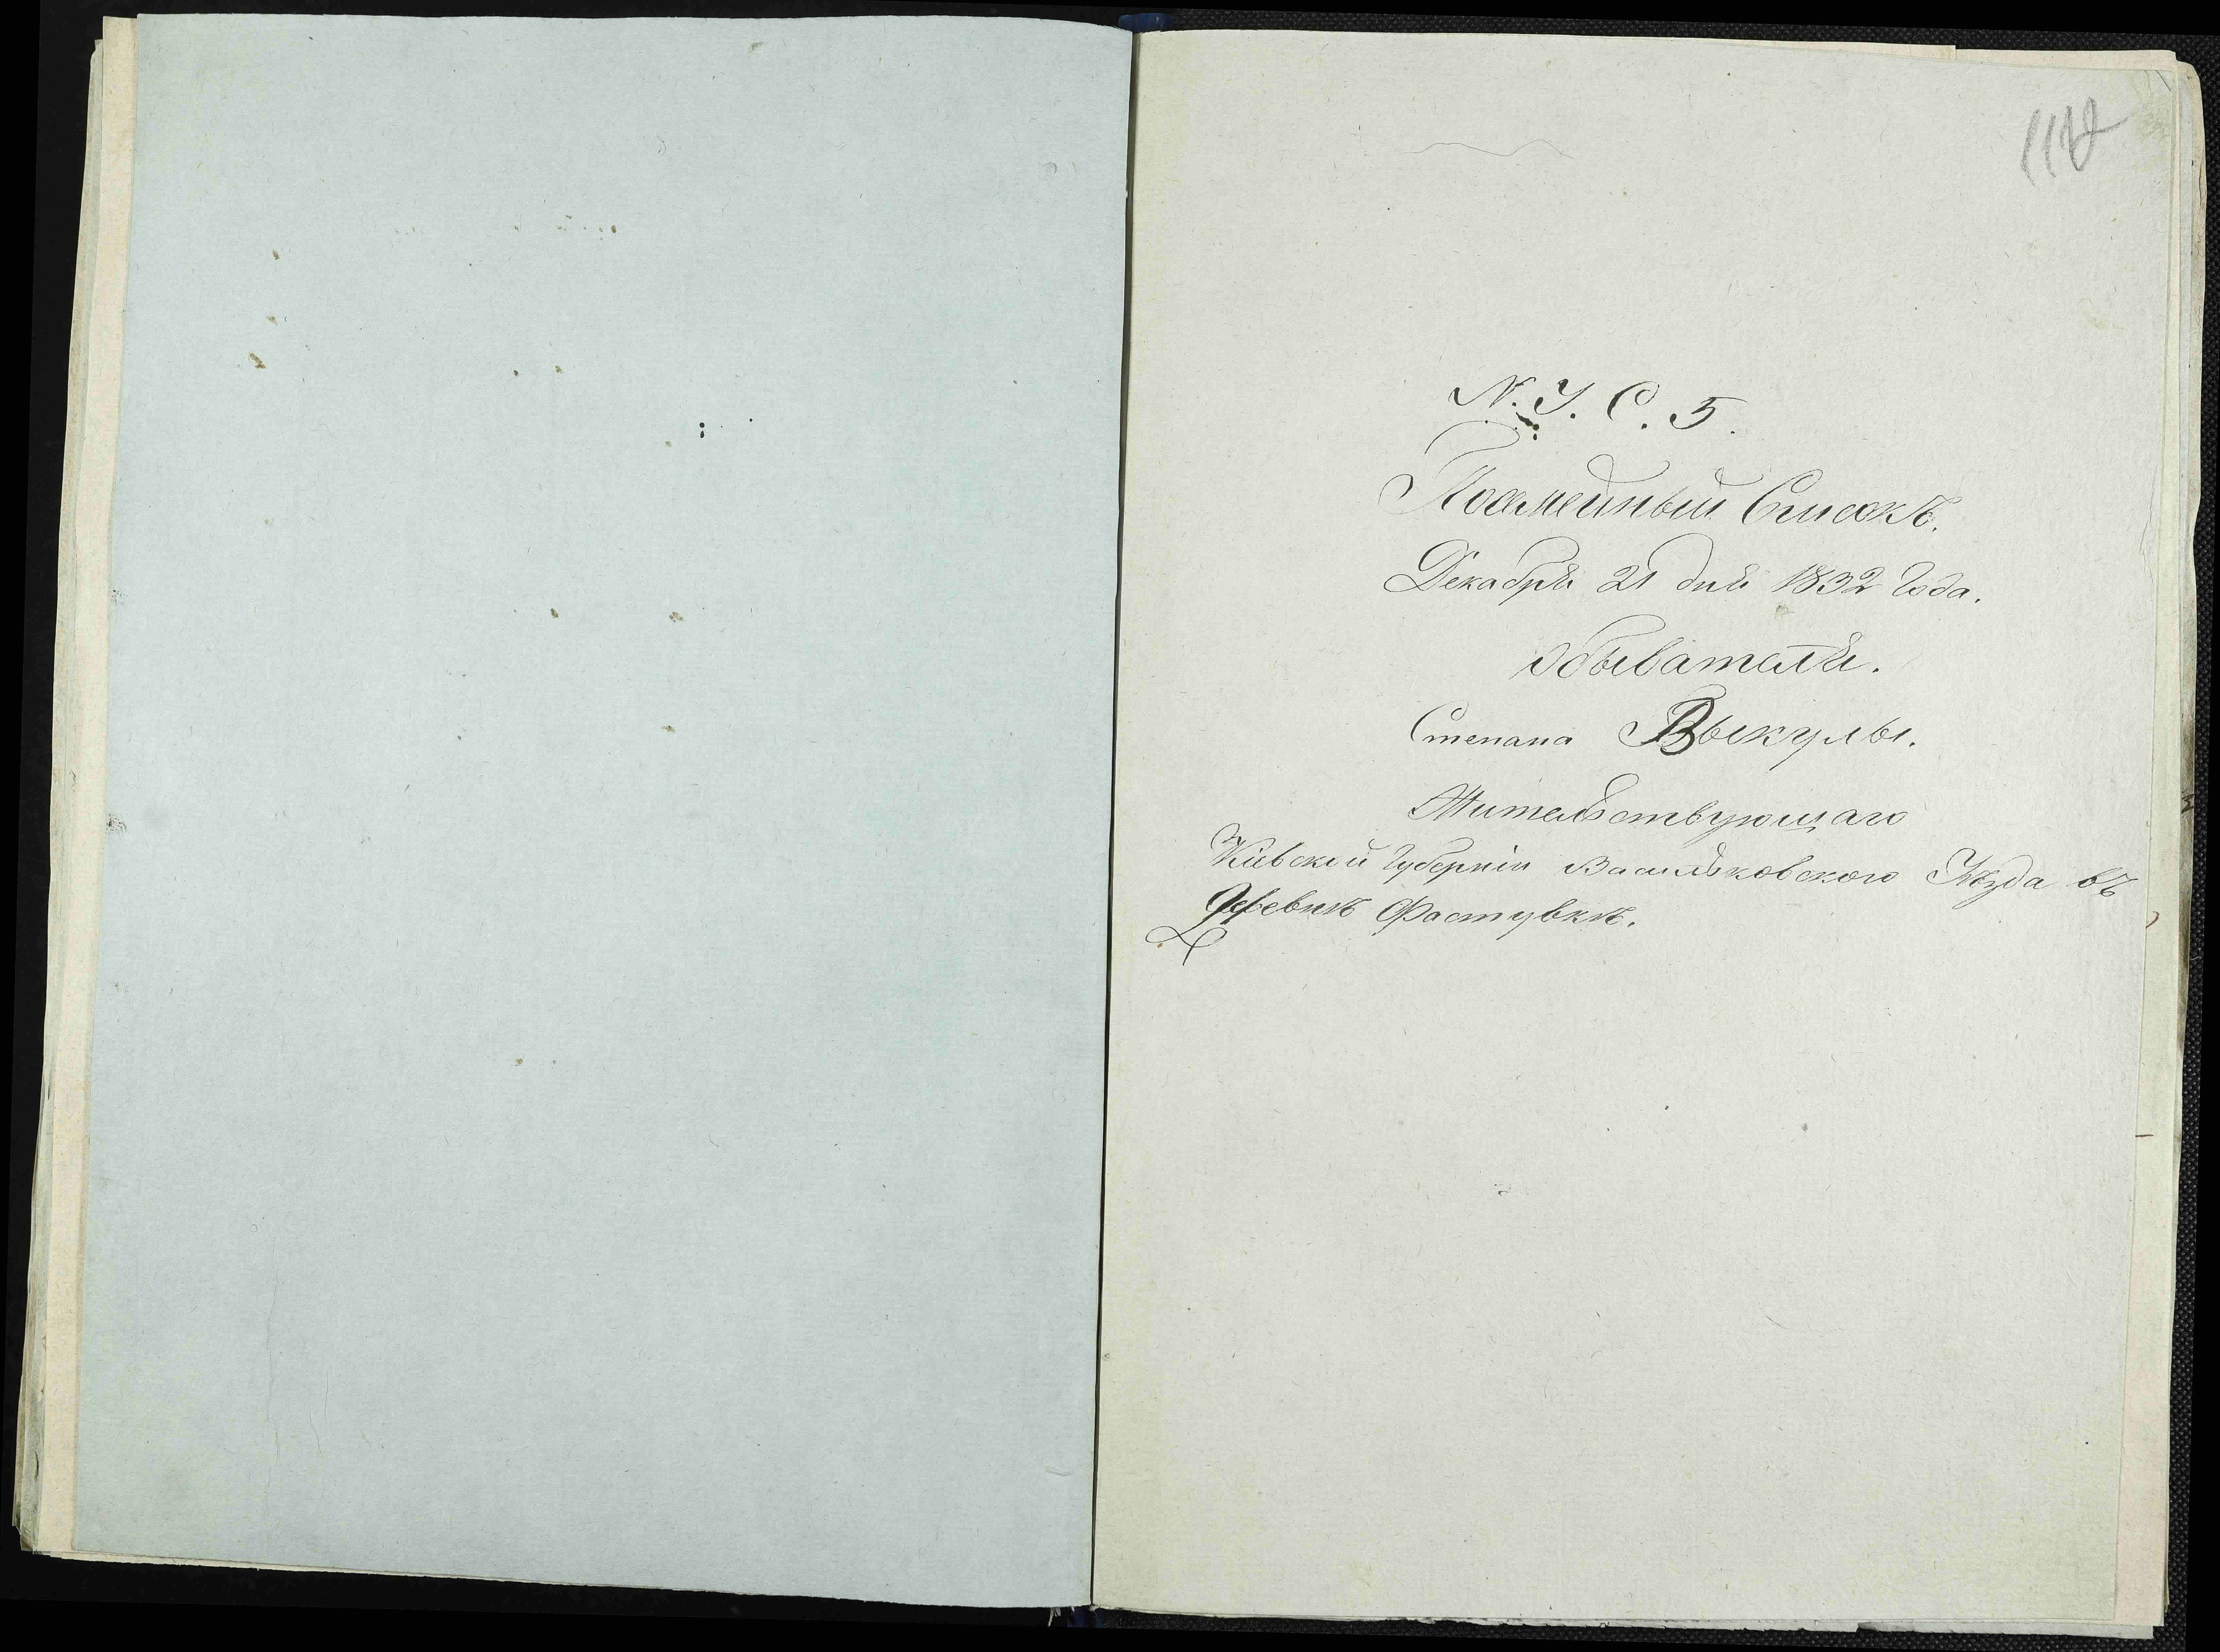 N. У. С. 5.
Посемейный Списокъ.
Декабря 21 дня 1832 года.
Обывателя.
Степана Выкулы.
Жительствующаго
Кіевской Губерніи Васильковского Уѣзда въ
Деревнѣ Фастувкѣ.